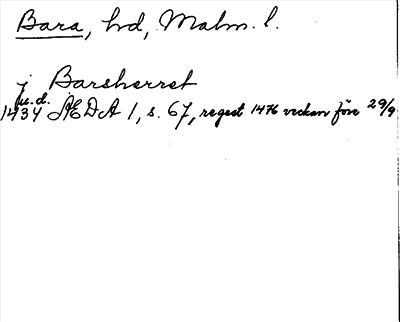 Bara, hd, Malm. l.
j Barsherret
u.d.
1434 ÆDA 1, s. 67, regest 1476 veckan före 29/9